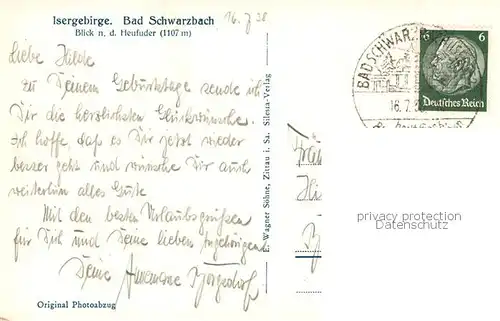 Isergebirge. Bad Schwarzbach
Blick n. d. Heufuder (1107 m)
16. 7. 38
Liebe Hilde
Zu Deinem Geburtstage sende ich
Dir die herzlichsten Glückwünsche.
Ich hoffe, daß es Dir jetzt wieder
besser geht und wünsche Dir auch
weiterhin alles Gute.
Mit den besten Urlaubsgrüßen
für Dich und Deine lieben Angehörigen
Deine Annemarie
Original Photoabzug
E. Wagner Söhne, Zittau i. Sa. Silesia-Verlag
BAD SCHWARZ
16.7.
6 6
Deutsches Reich
privacy protection
Datenschutz